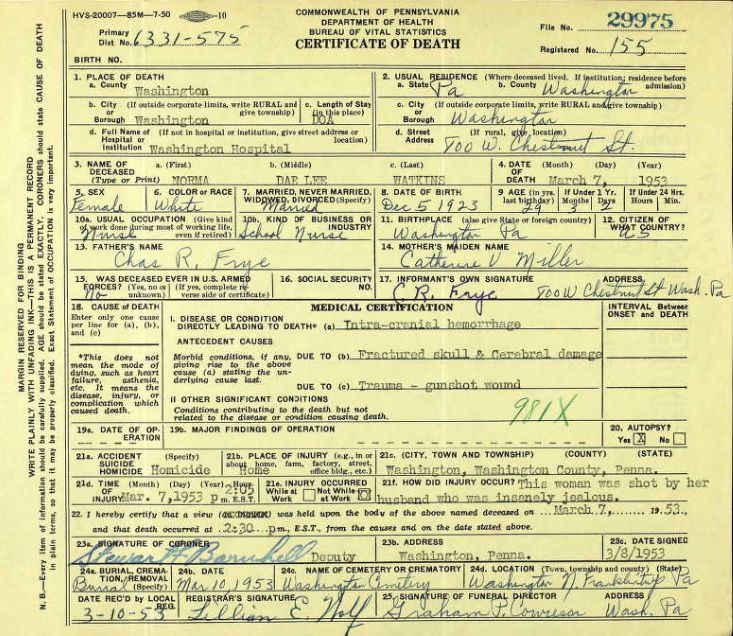 HVS-20007—85M—7-50 -10
COMMONWEALTH OF PENNSYLVANIA
DEPARTMENT OF HEALTH
BUREAU OF VITAL STATISTICS
CERTIFICATE OF DEATH
File No. 29975
Primary
Dist No. 6331-575
Registered No. 155
BIRTH NO.
1. PLACE OF DEATH
a. County Washington
2. USUAL RESIDENCE (Where deceased lived. If institution; residence before admission)
a. State Pa b. County Washington
b. City or Borough (If outside corporate limits, write RURAL and give township) Washington
c. Length of Stay (in this place) DOA
c. City or Borough (If outside corporate limits, write RURAL and give township) Washington
d. Full Name of Hospital or Institution (If not in hospital or institution, give street address or location) Washington Hospital
d. Street Address (If rural, give location) 700 W. Chestnut St.
3. NAME OF DECEASED (Type or Print)
a. (First) NORMA b. (Middle) DAE LEE c. (Last) WATKINS
4. DATE OF DEATH (Month) (Day) (Year) March 7, 1953
5. SEX Female
6. COLOR or RACE White
7. MARRIED, NEVER MARRIED, WIDOWED, DIVORCED (Specify) Married
8. DATE OF BIRTH Dec 5 1923
9 AGE (in yrs. last birthday) 29 If Under 1 Yr. Months 3 Days 2 If Under 24 Hrs. Hours Min.
10a. USUAL OCCUPATION (Give kind of work done during most of working life, even if retired) Nurse
10b. KIND OF BUSINESS OR INDUSTRY School Nurse
11. BIRTHPLACE (also give State or foreign country) Washington Pa
12. CITIZEN OF WHAT COUNTRY? US
13. FATHER'S NAME
Chas R. Frye
14. MOTHER'S MAIDEN NAME
Catherine V Miller
15. WAS DECEASED EVER IN U.S. ARMED FORCES? (Yes, no or unknown) (If yes, complete reverse side of certificate) No
16. SOCIAL SECURITY NO.
17. INFORMANT'S OWN SIGNATURE ADDRESS
C R. Frye 700 W Chestnut St Wash. Pa
18. CAUSE OF DEATH
Enter only one cause per line for (a), (b), and (c)
MEDICAL CERTIFICATION
INTERVAL Between ONSET and DEATH
I. DISEASE OR CONDITION
DIRECTLY LEADING TO DEATH* (a) Intra-cranial hemorrhage
ANTECEDENT CAUSES
*This does not mean the mode of dying, such as heart failure, asthenia, etc. It means the disease, injury, or complication which caused death.
Morbid conditions, if any, giving rise to the above cause (a) stating the underlying cause last.
DUE TO (b) Fractured skull & Cerebral damage
DUE TO (c) Trauma - gunshot wound
II OTHER SIGNIFICANT CONDITIONS
Conditions contributing to the death but not related to the disease or condition causing death.
981X
19a. DATE OF OPERATION
19b. MAJOR FINDINGS OF OPERATION
20. AUTOPSY?
Yes X No
21a. ACCIDENT SUICIDE HOMICIDE Homicide
21b. PLACE OF INJURY (e.g., in or about home, farm, factory, street, office bldg., etc.) Home
21c. (CITY, TOWN AND TOWNSHIP) (COUNTY) (STATE)
Washington, Washington County, Penna.
21d. TIME OF INJURY (Month) (Day) (Year) Hour Mar. 7, 1953 2:05 pm E.S.T.
21e. INJURY OCCURRED While at Work Not While at Work
21f. HOW DID INJURY OCCUR? This woman was shot by her
husband who was insanely jealous.
22. I hereby certify that a view was held upon the body of the above named deceased on March 7, 1953,
and that death occurred at 2:30 pm., E.S.T., from the causes and on the date stated above.
23a. SIGNATURE OF CORONER
Stewart H Barnhell Deputy
23b. ADDRESS
Washington, Penna.
23c. DATE SIGNED
3/8/1953
24a. BURIAL, CREMATION, REMOVAL (Specify) Burial
24b. DATE
Mar 10, 1953
24c. NAME OF CEMETERY OR CREMATORY
Washington Cemetery
24d. LOCATION (Town, township and county) (State)
Washington N. Franklin Twp Pa
DATE REC'D by LOCAL REG. 3-10-53
REGISTRAR'S SIGNATURE
Lillian E. Wolf
25. SIGNATURE OF FUNERAL DIRECTOR ADDRESS
Graham P. Wash. Pa
MARGIN RESERVED FOR BINDING
WRITE PLAINLY WITH UNFADING INK—THIS IS A PERMANENT RECORD
N. B.—Every item of information should be carefully supplied. AGE should be stated EXACTLY. CORONERS should state CAUSE OF DEATH
in plain terms, so that it may be properly classified. Exact Statement of OCCUPATION is very important.